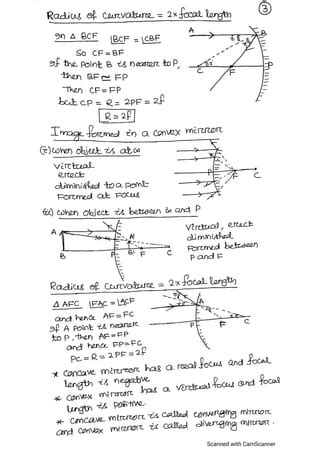 Radius of Curvature = 2 x focal length
3
In Δ BCF ⌊BCF = ⌊CBF
So CF = BF
If the Point B is nearer to P,
then BF ≃ FP
Then CF = FP
but CP = R = 2PF = 2f
R = 2f
A
B
C
F
P
Image formed in a convex mirror
(i) When object is at ∞
Virtual
erect
diminished to a point
Formed at Focus
P
F
C
(ii) When object is between ∞ and P
A
B
P
A'
B'
F
C
Virtual, erect
diminished
Formed between
P and F
Radius of Curvature = 2 x focal length
Δ AFC ⌊FAC = ⌊ACF
and hence AF = FC
If A Point is nearer
to P, then AF = FP
and hence FP = FC
PC = R = 2PF = 2f
A
P
F
C
* Concave mirror has a real focus and focal
length is negative
* Convex mirror has a virtual focus and focal
length is positive.
* Concave mirror is called converging mirror
and Convex mirror is called diverging mirror.
Scanned with CamScanner